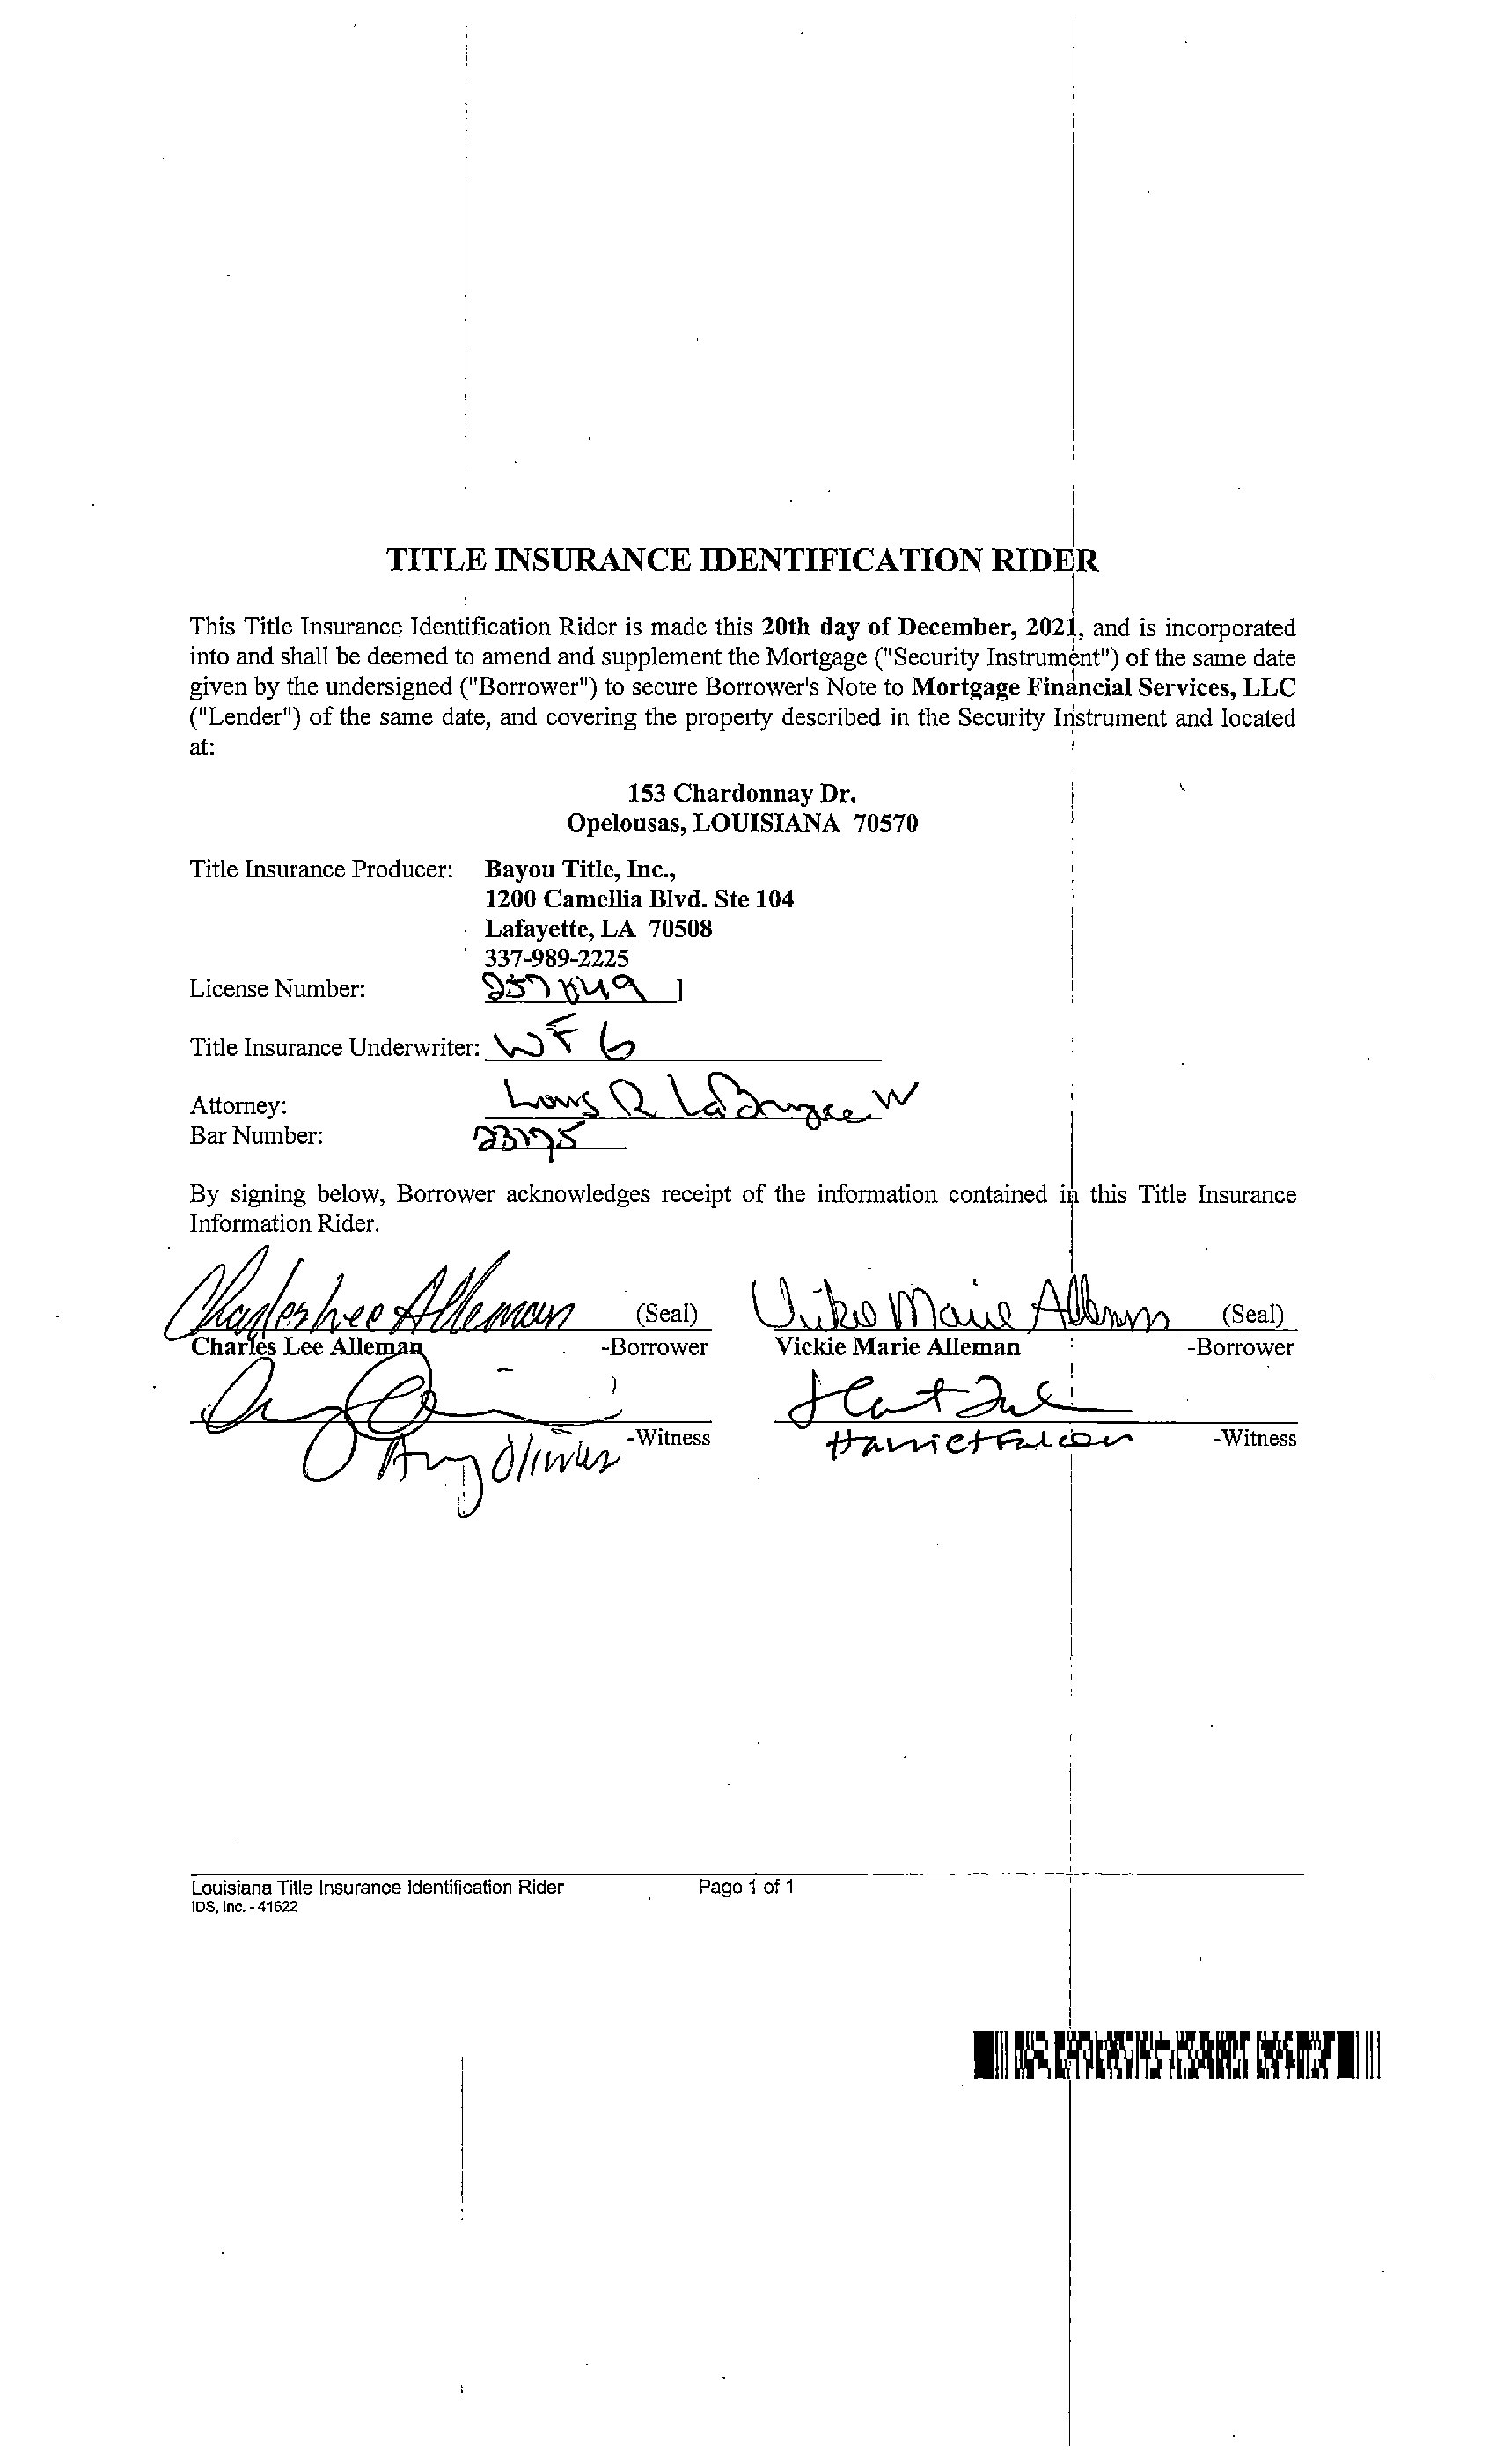 TITLE INSURANCE IDENTIFICATION RIDER
This Title Insurance Identification Rider is made this 20th day of December, 2021, and is incorporated
into and shall be deemed to amend and supplement the Mortgage ("Security Instrument") of the same date
given by the undersigned ("Borrower") to secure Borrower's Note to Mortgage Financial Services, LLC
("Lender") of the same date, and covering the property described in the Security Instrument and located
at:
153 Chardonnay Dr.
Opelousas, LOUISIANA 70570
Title Insurance Producer: Bayou Title, Inc.,
1200 Camellia Blvd. Ste 104
Lafayette, LA 70508
337-989-2225
License Number:
Title Insurance Underwriter: WFG
Attorney: Louis R
Bar Number: 23175
By signing below, Borrower acknowledges receipt of the information contained in this Title Insurance
Information Rider.
Charles Lee Alleman (Seal) Vickie Marie Alleman (Seal)
Charles Lee Alleman -Borrower Vickie Marie Alleman -Borrower
-Witness Harriet Falcon -Witness
Amy Olivier
Louisiana Title Insurance Identification Rider Page 1 of 1
IDS, Inc. - 41622